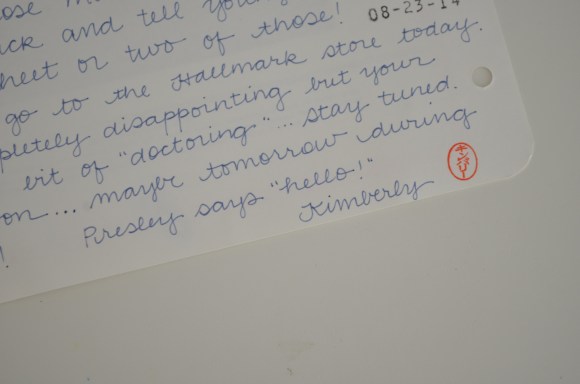 and tell
or two of those! 08-23-14
go to the Hallmark store today.
pletely disappointing but your
bit of "doctoring"... stay tuned.
on... maybe tomorrow during
! Presley says "hello!"
Kimberly